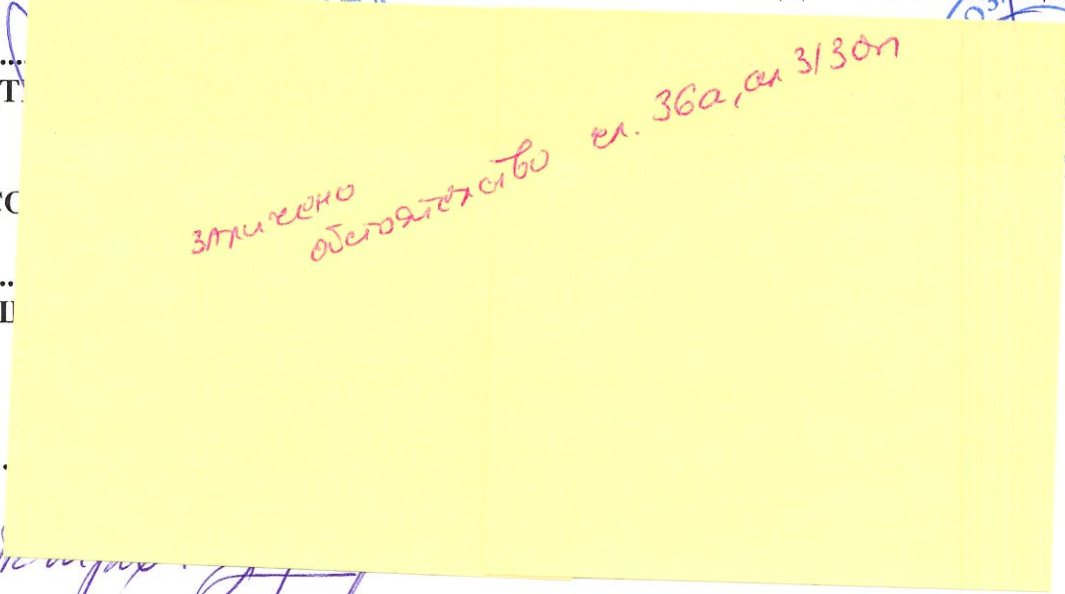 заличено
обстоятелство чл. 36а, ал 3/ЗОП